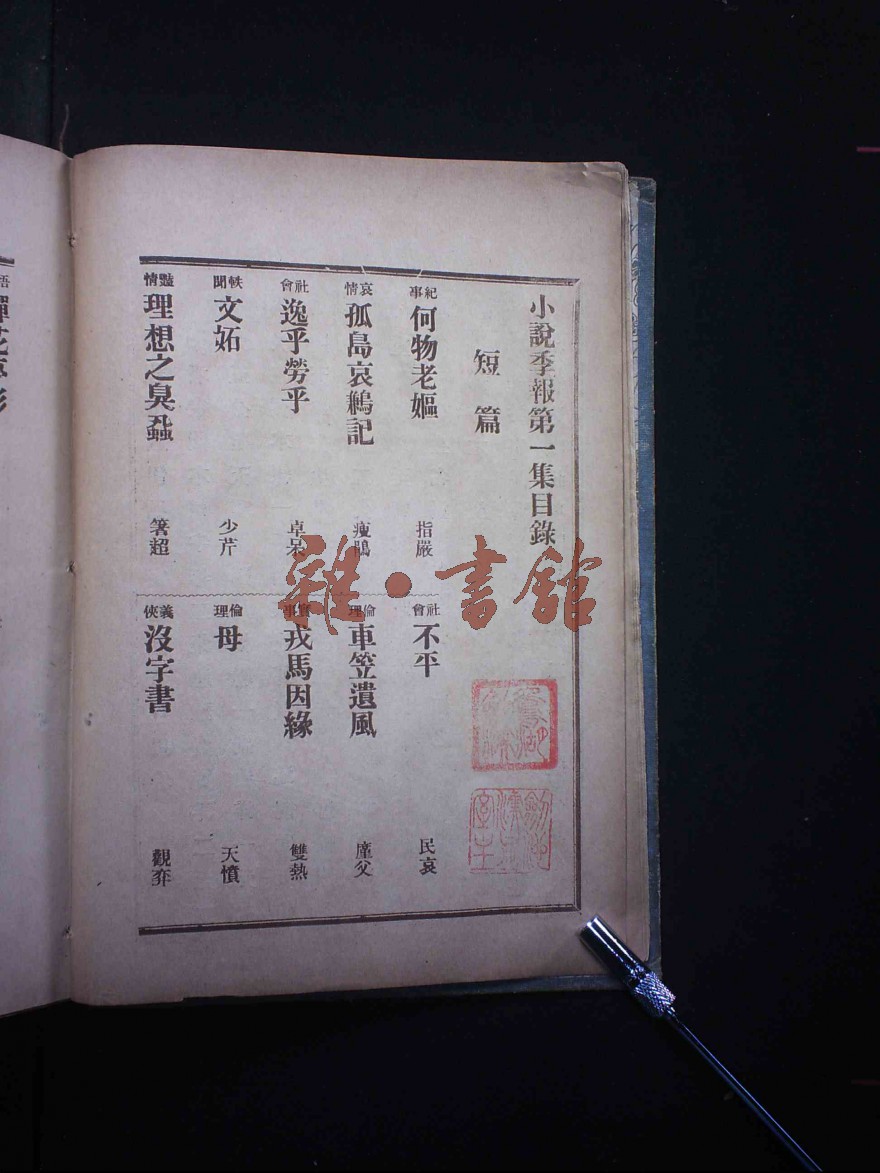 小說季報第一集目錄
短篇
紀事 何物老嫗 指嚴
哀情 孤島哀鶼記 瘦鵑
社會 逸乎勞乎 卓呆
軼聞 文妬 少芹
豔情 理想之臭蝨 箸超
社會 不平 民哀
倫理 車笠遺風 塵父
戎馬因緣 雙熱
倫理 母 天憤
義俠 沒字書 觀弈
雜·書館